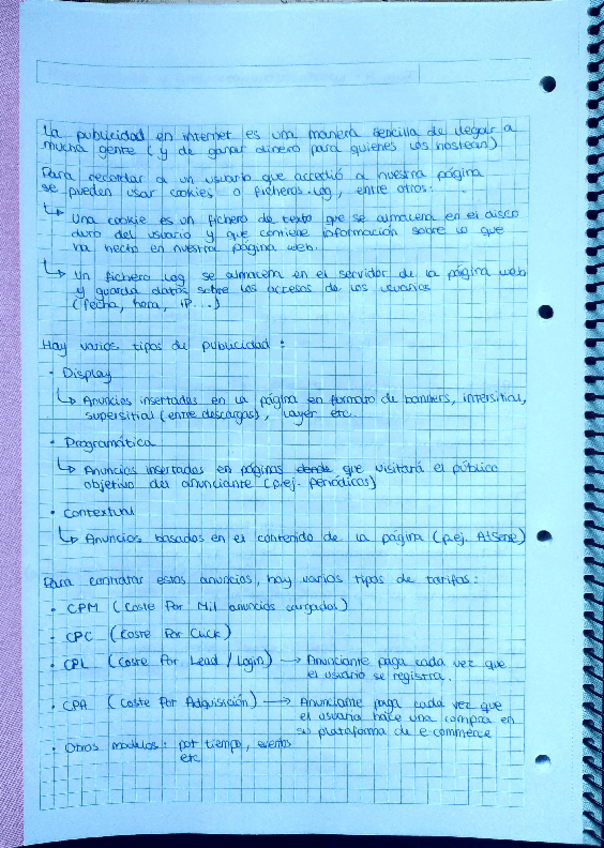 La publicidad en internet es una manera sencilla de llegar a
mucha gente (y de ganar dinero para quienes los hostean)
Para recordar a un usuario que accedió a nuestra página
se pueden usar cookies o ficheros .log, entre otros:
↳ Una cookie es un fichero de texto que se almacena en el disco
duro del usuario y que contiene información sobre lo que
ha hecho en nuestra página web.
↳ Un fichero log se almacena en el servidor de la página web
y guarda datos sobre los accesos de los usuarios
(fecha, hora, IP...)
Hay varios tipos de publicidad:
· Display
↳ Anuncios insertados en la página en formato de banners, intersitial,
supersitial (entre descargas), layer etc.
· Programática
↳ Anuncios insertados en páginas donde que visitará el público
objetivo del anunciante (p.ej. periódicos)
· Contextual
↳ Anuncios basados en el contenido de la página (p.ej. AdSene)
Para contratar estos anuncios, hay varios tipos de tarifas:
· CPM (Coste Por Mil anuncios cargados)
· CPC (Coste Por Click)
· CPL (Coste Por Lead / Login) → Anunciante paga cada vez que
el usuario se registra.
· CPA (Coste Por Adquisición) → Anunciante paga cada vez que
el usuario hace una compra en
su plataforma de e-commerce
· Otros modelos: por tiempo, eventos
etc